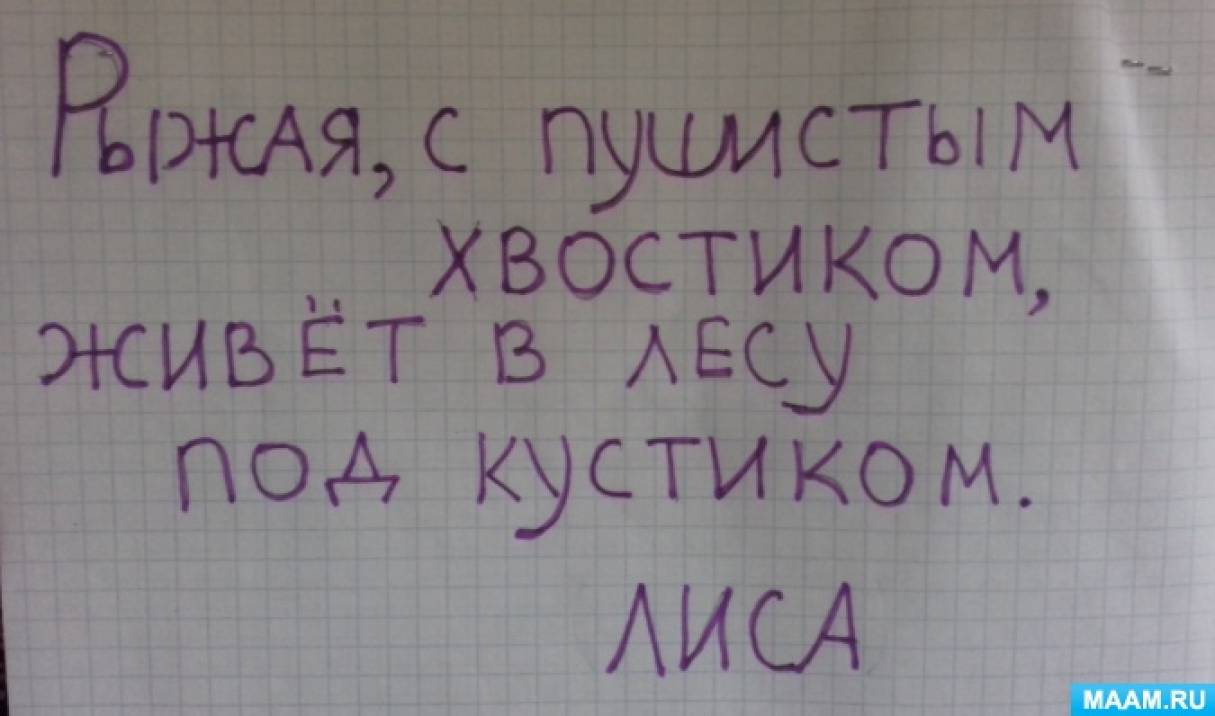 Рыжая, с пушистым
хвостиком,
живёт в лесу
под кустиком.
ЛИСА
MAAM.RU